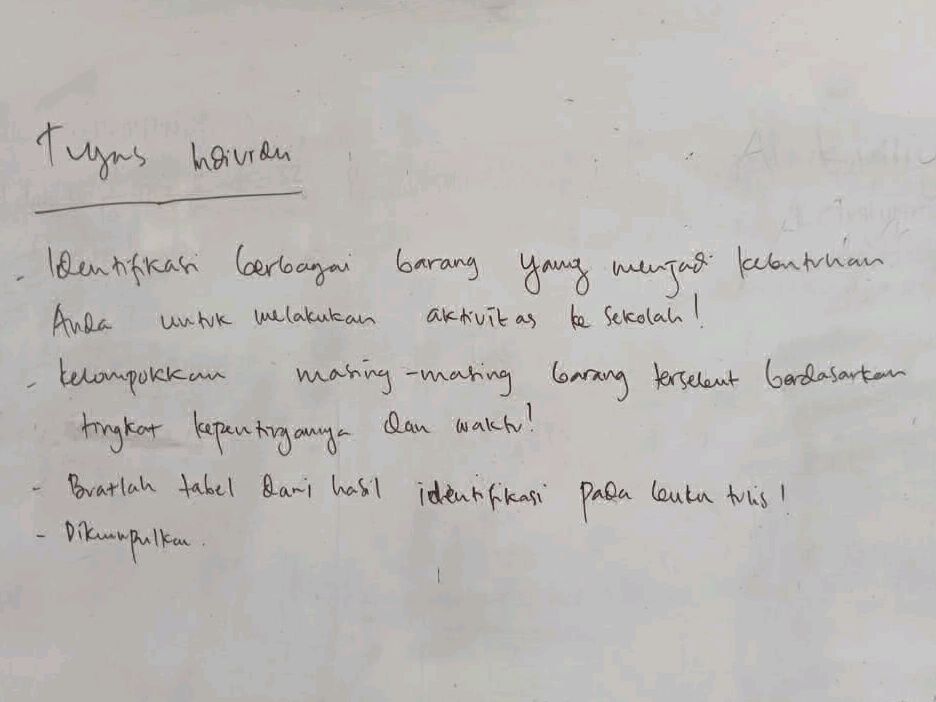 Tugas Individu
- Identifikasi berbagai barang yang menjadi kebutuhan
Anda untuk melakukan aktivitas ke sekolah!
- Kelompokkan masing-masing barang tersebut berdasarkan
tingkat kepentingannya dan waktu!
- Buatlah tabel dari hasil identifikasi pada buku tulis!
- Dikumpulkan.